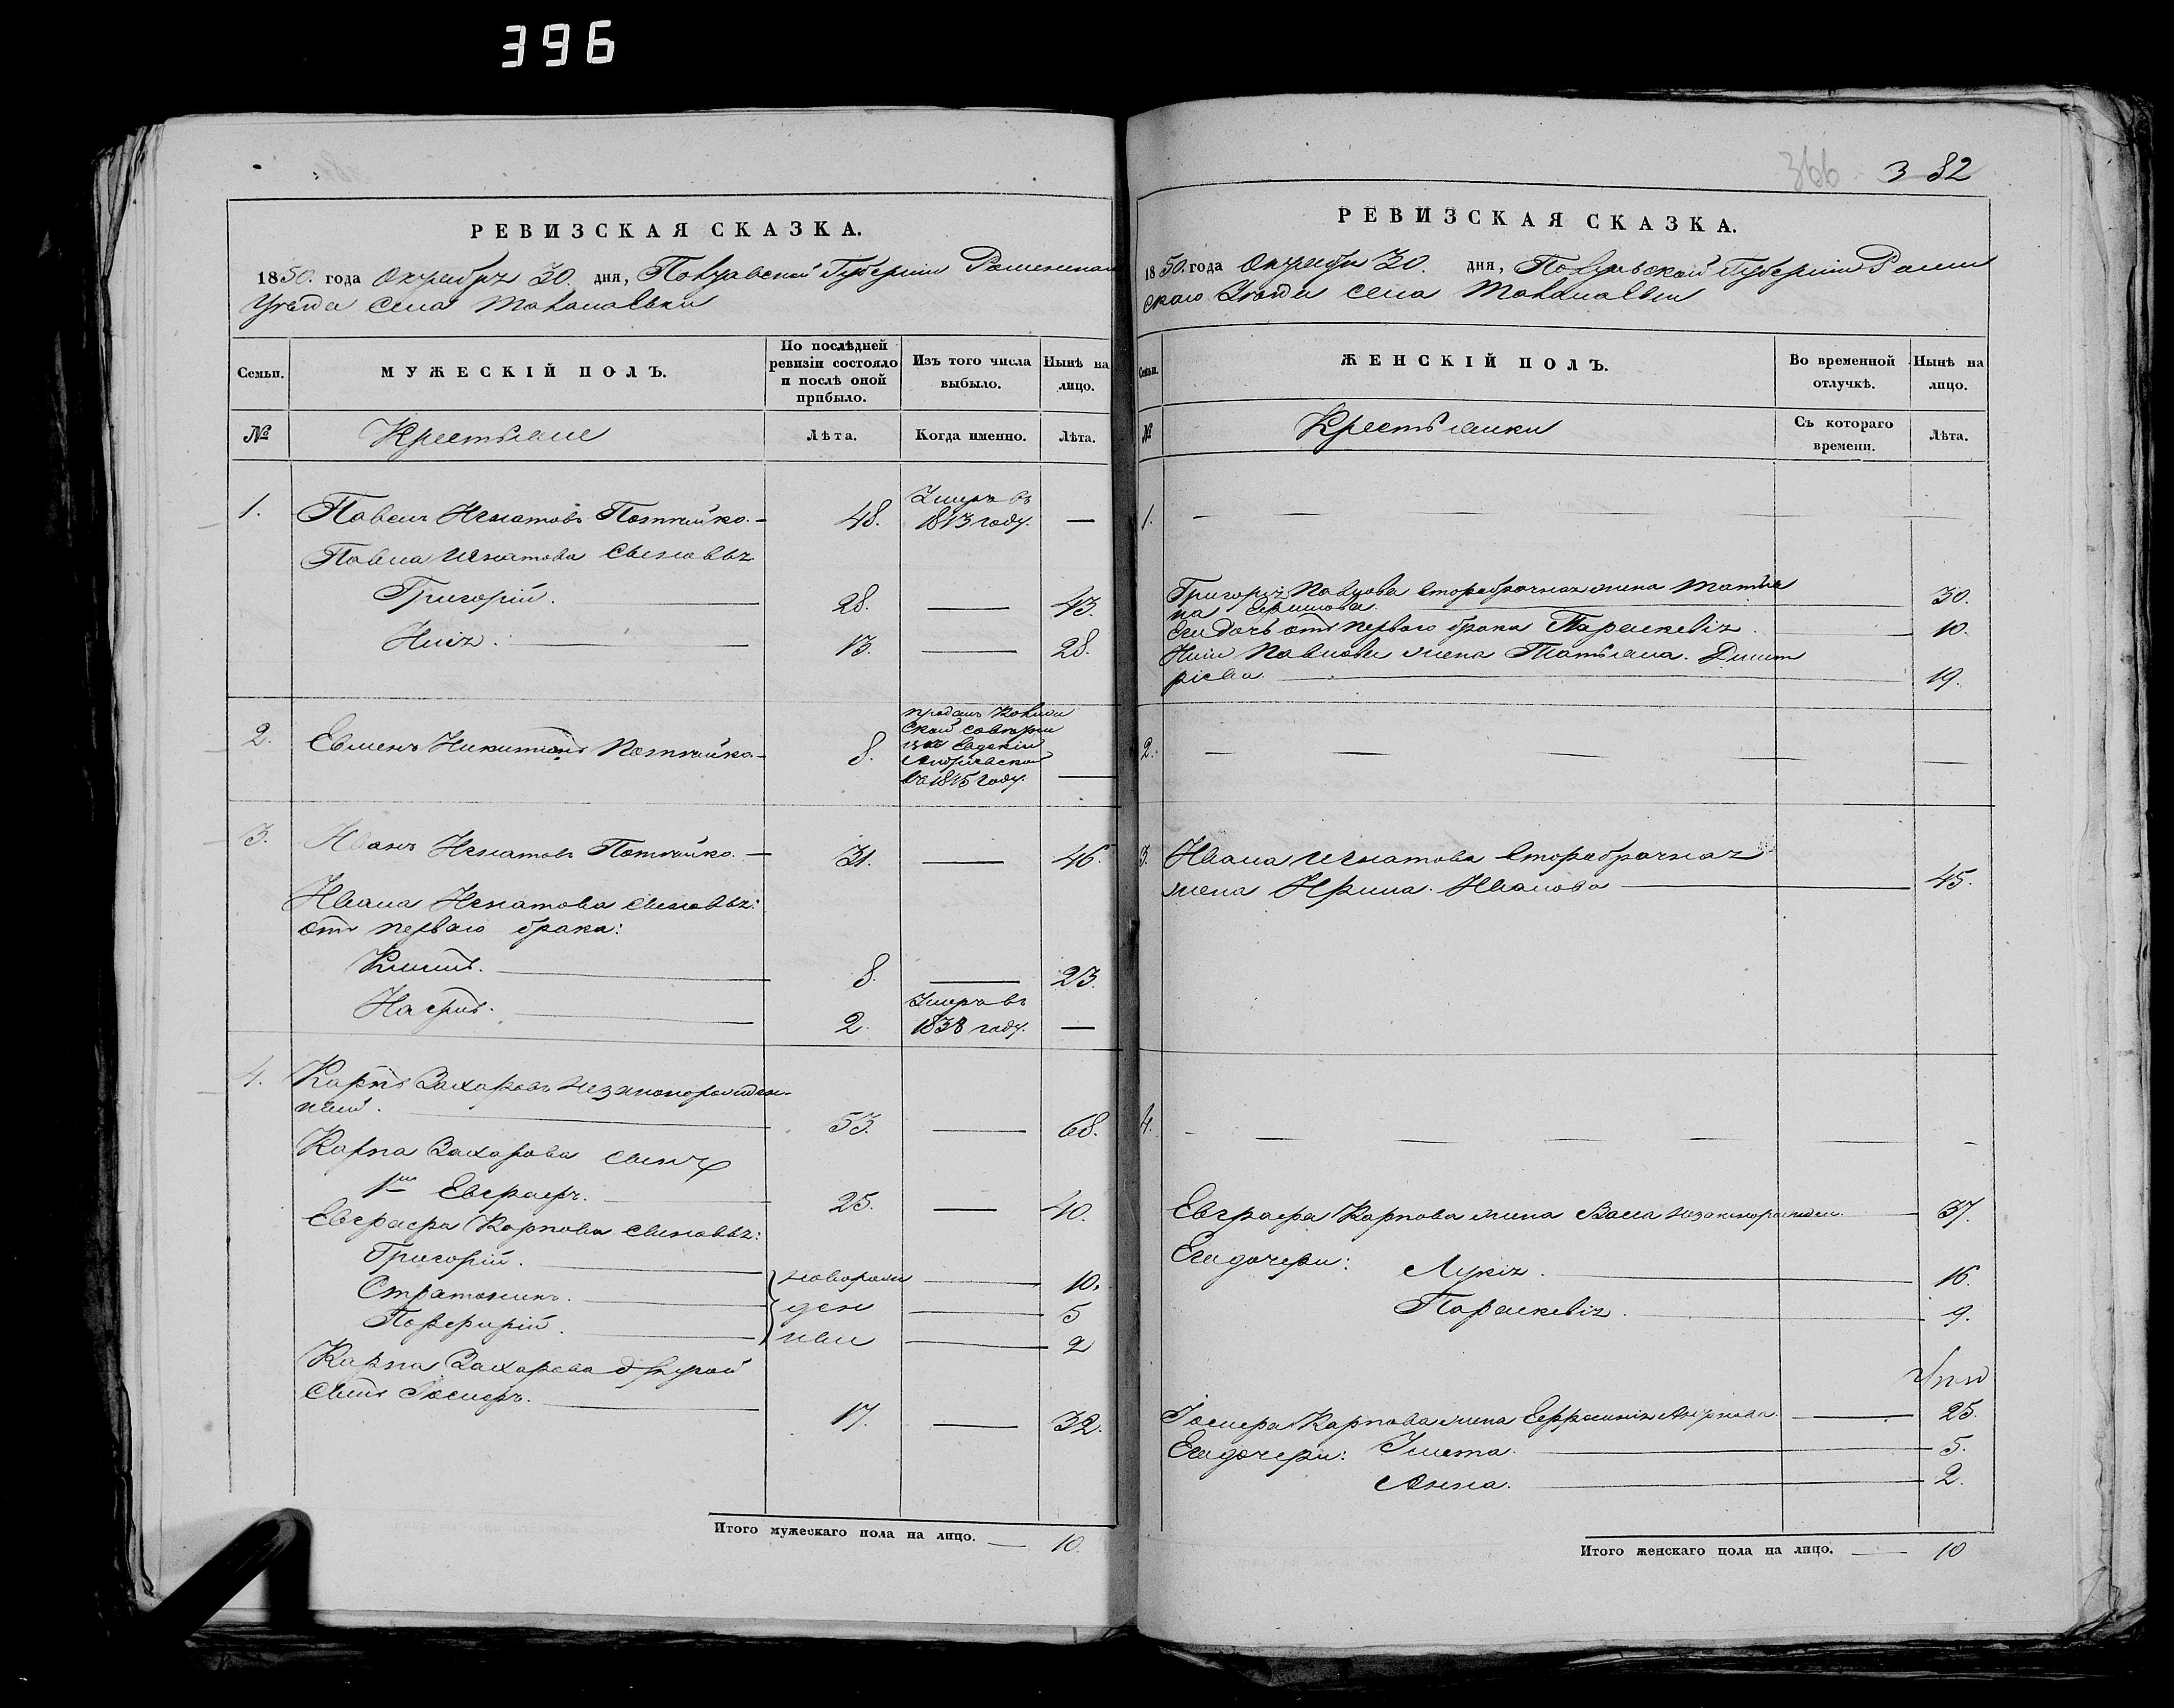 396
РЕВИЗСКАЯ СКАЗКА.
1850. года Октября 30. дня, Полтавской Губерніи Роменскаго
Уезда села
Семьи.
МУЖЕСКІЙ ПОЛЪ.
По послѣдней ревизіи состояло и послѣ оной прибыло.
Изъ того числа выбыло.
Нынѣ на лицо.
№
Крестьяне
Лѣта.
Когда именно.
Лѣта.
1. Павелъ Игнатовъ — 48. Умеръ въ 1843 году. —
Павла Игнатова сыновья
Григорій. — 28. — 43.
Илія. — 13. — 28.
2. Евменъ Никитинъ — 8. проданъ
въ 1845 году. —
3. Иванъ Игнатовъ — 31. — 46.
Ивана Игнатова сыновья:
отъ перваго брака:
Климъ. — 8. — 23.
— 2. Умеръ въ 1838 году. —
4. Карпъ Захаровъ незаконорожден
ный. — 53. — 68.
Карпа Захарова сынъ
1й Евграфъ. — 25. — 40.
Евграфа Карпова сыновья:
Григорій. — новорож — 10.
Стратоникъ. — ден — 5
Порфирій. — ныи — 2
Карпа Захарова другой
сынъ Іосифъ. — 17. — 32.
Итого мужескаго пола на лицо. — 10.
366
382
РЕВИЗСКАЯ СКАЗКА.
1850. года Октября 30. дня, Полтавской Губерніи Ромен
скаго Уезда села
Семьи.
ЖЕНСКІЙ ПОЛЪ.
Во временной отлучкѣ.
Нынѣ на лицо.
№
Крестьянки
Съ котораго времени.
Лѣта.
1. — — — — —
Григорія Павлова второбрачная жена Татья
на — 30.
Его дочь отъ перваго брака Параскевія. — 10.
Иліи Павлова жена Татьяна. Димит
ріева — 19.
2. — — — — —
3. Ивана Игнатова второбрачная
жена Ирина. Иванова — 45.
4. — — — — —
Евграфа Карпова жена Васса незаконорожден. — 37.
Его дочери: Лукія. — 16.
Параскевія. — 9.
Іосифа Карпова жена Ефросинія — 25.
Его дочери: Улита. — 5.
Анна. — 2.
Итого женскаго пола на лицо. — 10